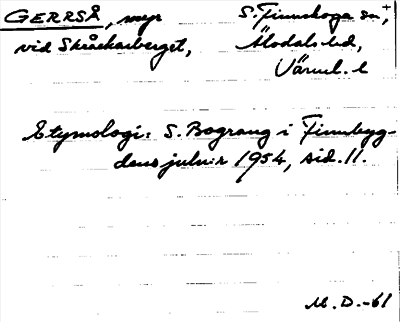 GERRSÅ, myr S. Finnskoga sn, +
vid Skråckarberget, Älvdals hd,
Värml. l
Etymologi: S. Bograng i Finnbyg-
dens julnr 1954, sid. 11.
M. D. -61